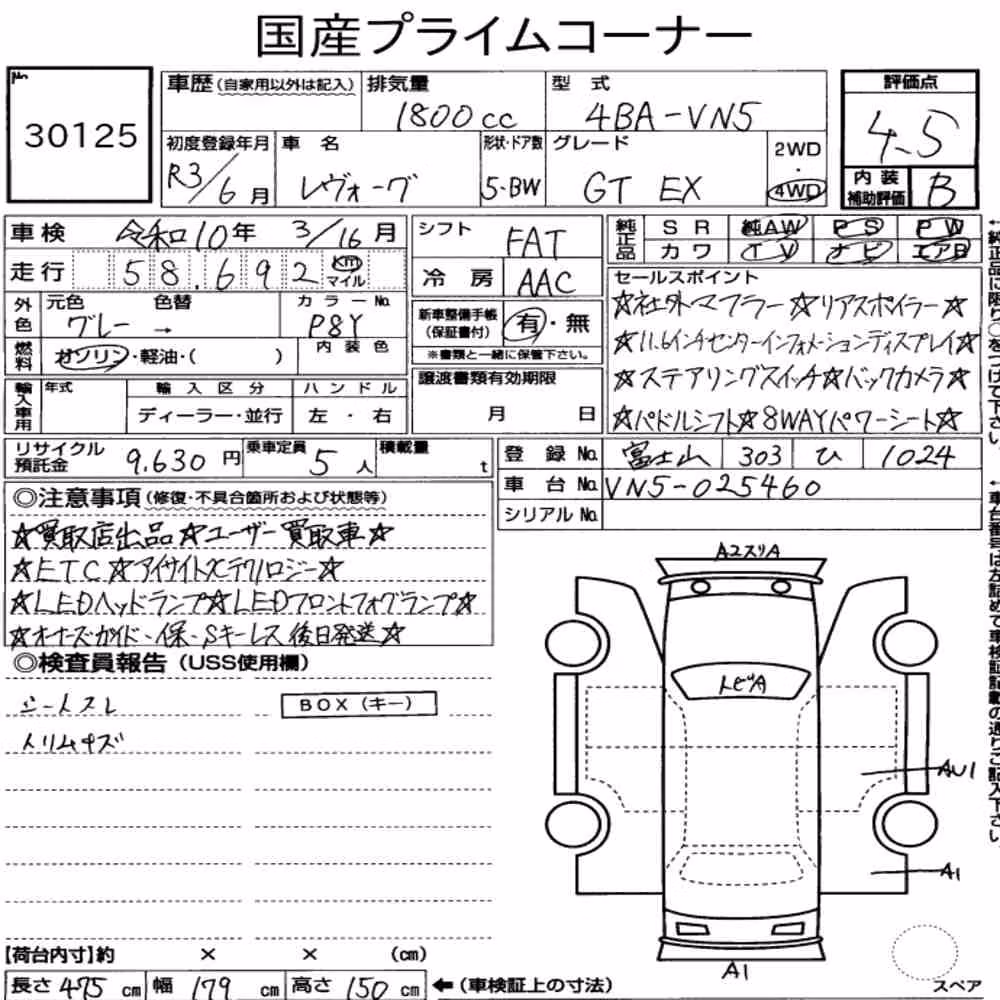 国産プライムコーナー
№ 30125
車歴(自家用以外は記入) 排気量 1800cc 型式 4BA-VN5 評価点 4.5
初度登録年月 R3/6月 車名 レヴォーグ 形状・ドア数 5・BW グレード GT EX 2WD・4WD 内装補助評価 B
車検 令和10年 3/16月 シフト FAT 純正品 SR 純AW PS PW
カワ TV ナビ エアB
走行 58,692 km マイル 冷房 AAC
外色 元色 グレー → 色替 カラーNo. P8Y 新車整備手帳(保証書付) 有・無
※書類と一緒に保管下さい。
燃料 ガソリン・軽油・( ) 内装色
輸入車用 年式 輸入区分 ディーラー・並行 ハンドル 左・右 譲渡書類有効期限 月 日
セールスポイント
☆社外マフラー☆リアスポイラー☆
☆11.6インチセンターインフォメーションディスプレイ☆
☆ステアリングスイッチ☆バックカメラ☆
☆パドルシフト☆8WAYパワーシート☆
リサイクル預託金 9,630円 乗車定員 5人 積載量 t
登録No. 富士山 303 ひ 1024
車台No. VN5-025460
シリアルNo.
◎注意事項(修復・不具合箇所および状態等)
☆買取店出品☆ユーザー買取車☆
☆ETC☆アイサイトXテクノロジー☆
☆LEDヘッドランプ☆LEDフロントフォグランプ☆
☆オーナーズガイド・保・Sキーレス後日発送☆
◎検査員報告(USS使用欄)
シートスレ BOX(キー)
トリムキズ
A2スリA
トビA
AU1
A1
A1
スペア
【荷台内寸】約 × × (cm)
長さ 475 cm 幅 179 cm 高さ 150 cm ←(車検証上の寸法)
←純正品に限り○をつけて下さい。
←車台番号は左詰めで車検証記載の通りご記入下さい。